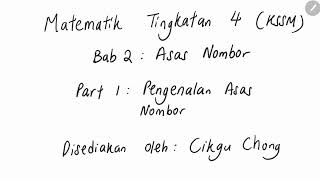 Matematik Tingkatan 4 (KSSM)
Bab 2 : Asas Nombor
Part 1 : Pengenalan Asas
Nombor
Disediakan oleh : Cikgu Chong